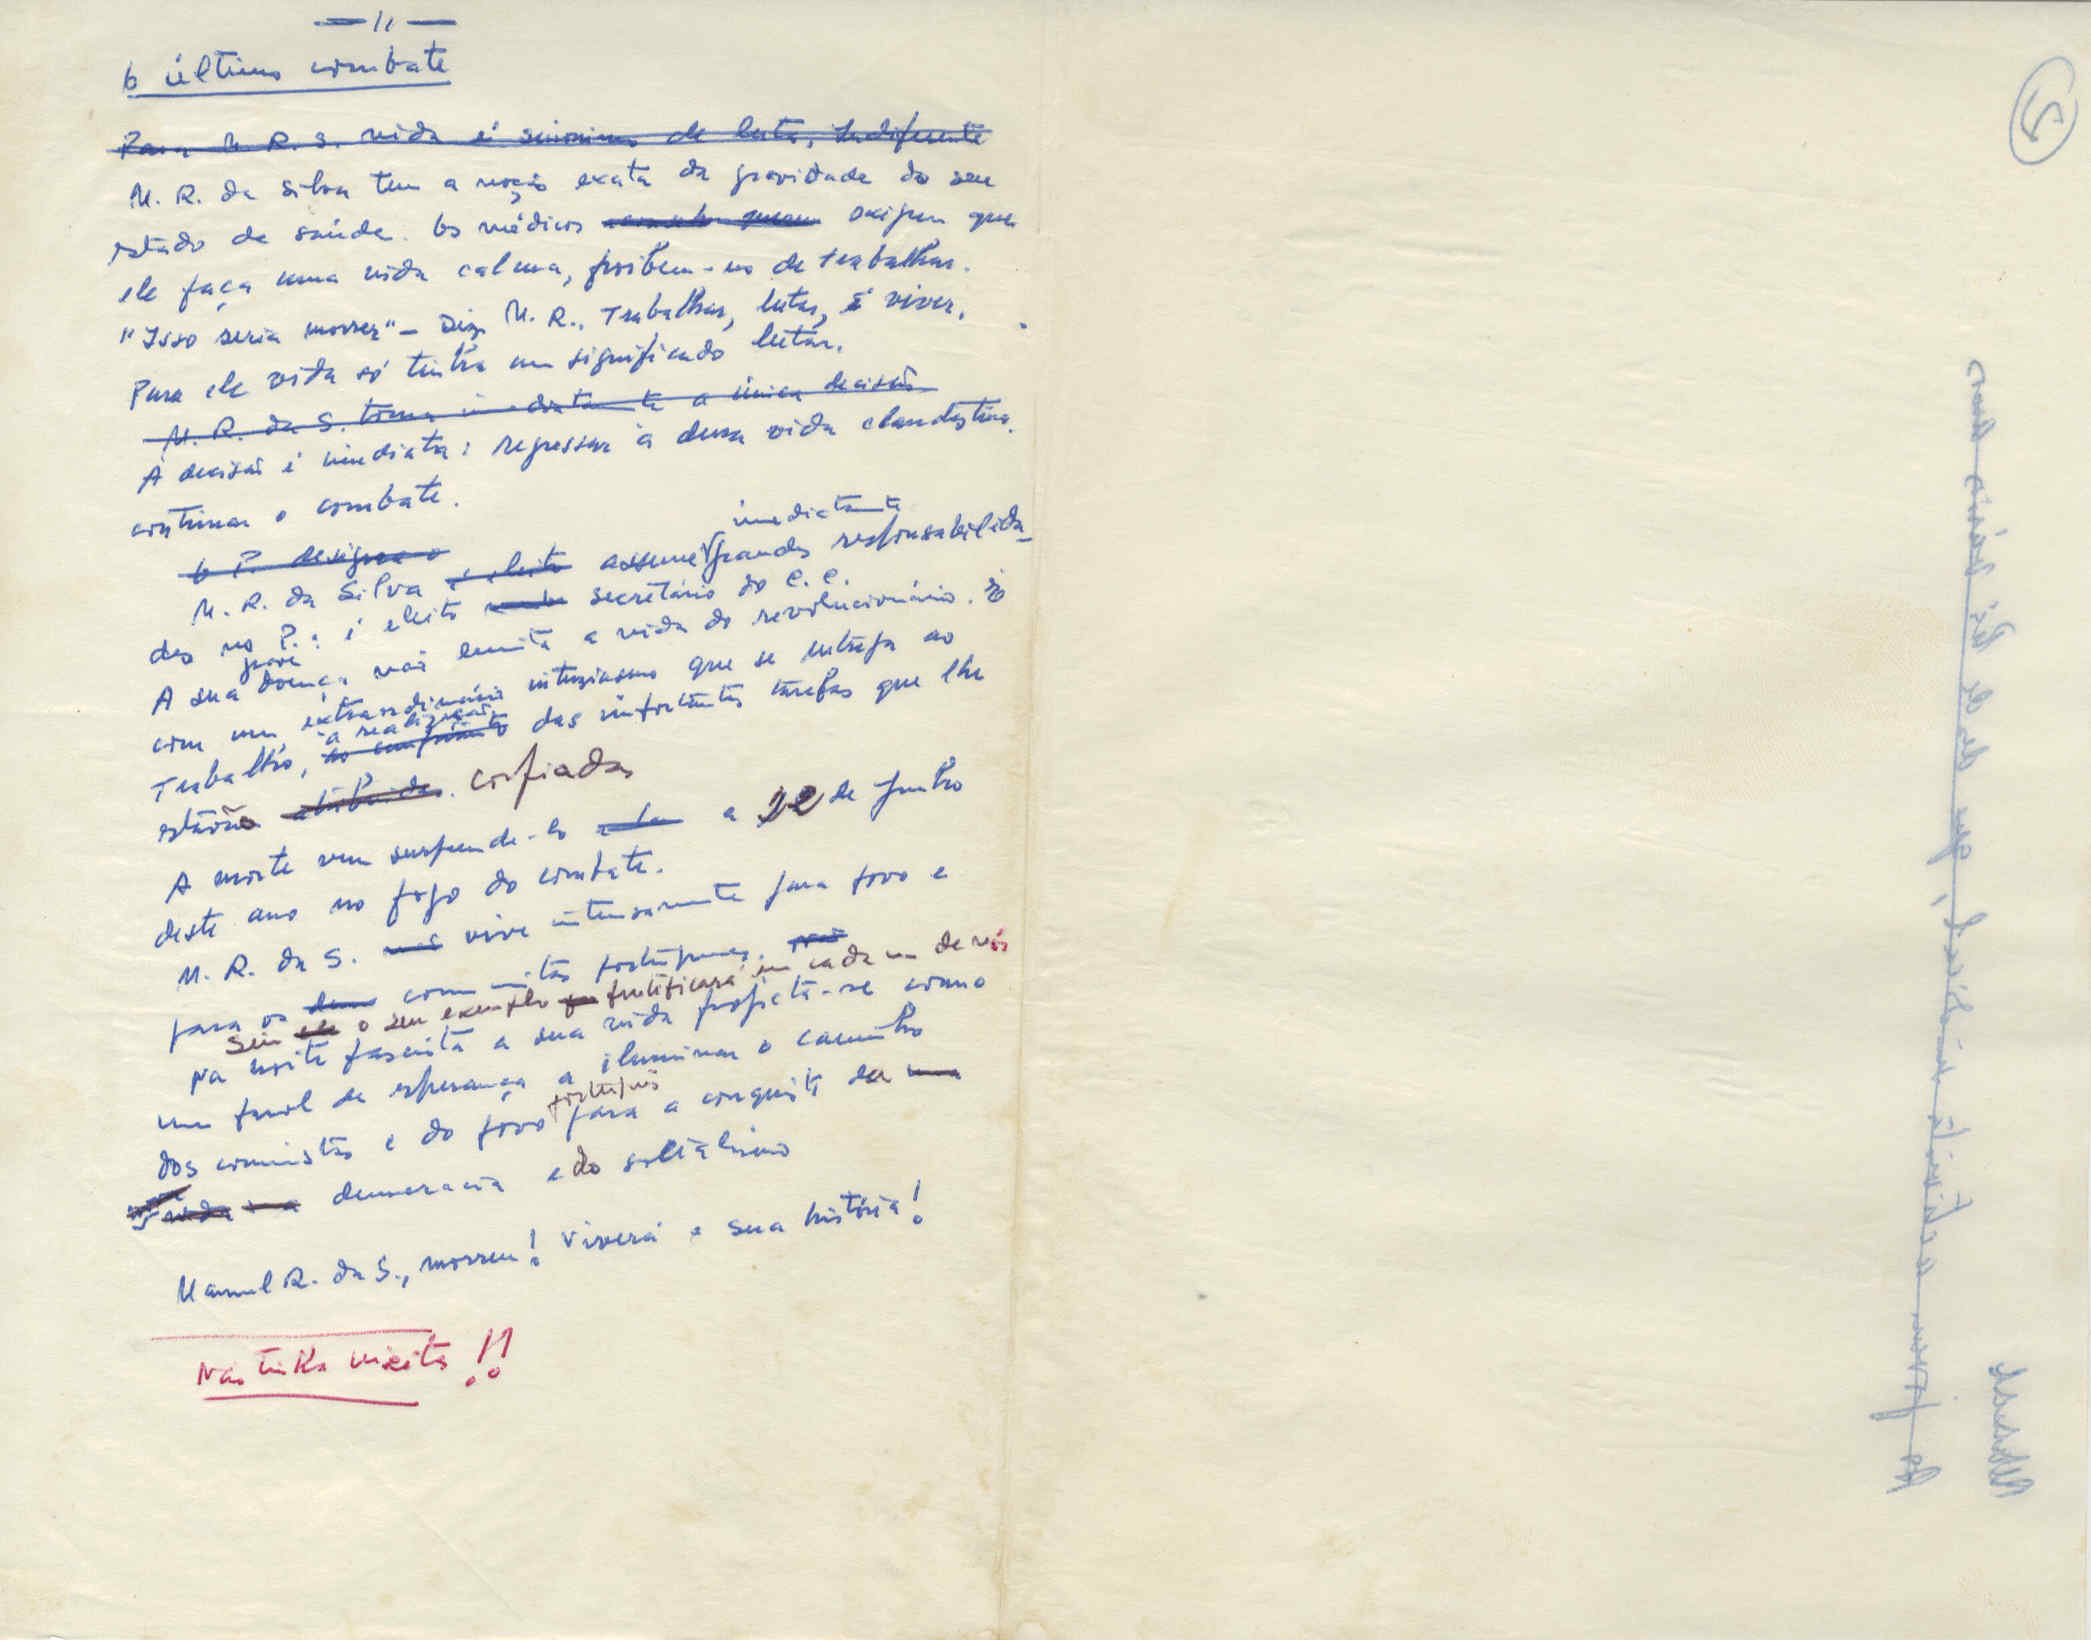 — 11 —
O último combate
Para M. R. S. vida é sinonimo de luta, Indiferente
M. R. da Silva tem a noção exata da gravidade do seu
estado de saúde. Os médicos exigem que
ele faça uma vida calma, proibem-no de trabalhar.
"Isso seria morrer" — Diz M. R., Trabalhar, lutar, é viver.
Para ele vida só tinha um significado lutar.
M. R. da S. toma imediatamente a única decisão
A decisão é imediata: regressar à dura vida clandestina.
continuar o combate.
O P. designa o
imediatamente
M. R. da Silva é eleito assume grandes responsabilida-
des no P.: é eleito secretário do C. C.
grave
A sua doença não limita a vida do revolucionário. É
extraordinário
com um intusiasmo que se entrega ao
à realização
Trabalho, ao cumprimento das importantes tarefas que lhe
estão atribuidas. confiadas
A morte vem surpreende-lo a 22 de Junho
deste ano no fogo do combate.
M. R. da S. vive intensamente para povo e
para os comunistas portugueses.
Sim o seu exemplo frutificará em cada um de nós
Na noite fascista a sua vida projecta-se como
um farol de esperança a iluminar o caminho
português
dos comunistas e do povo para a conquista da
vida democracia e do socialismo
Manuel R. da S., morreu! Viverá a sua história!
Não tinha visita!!